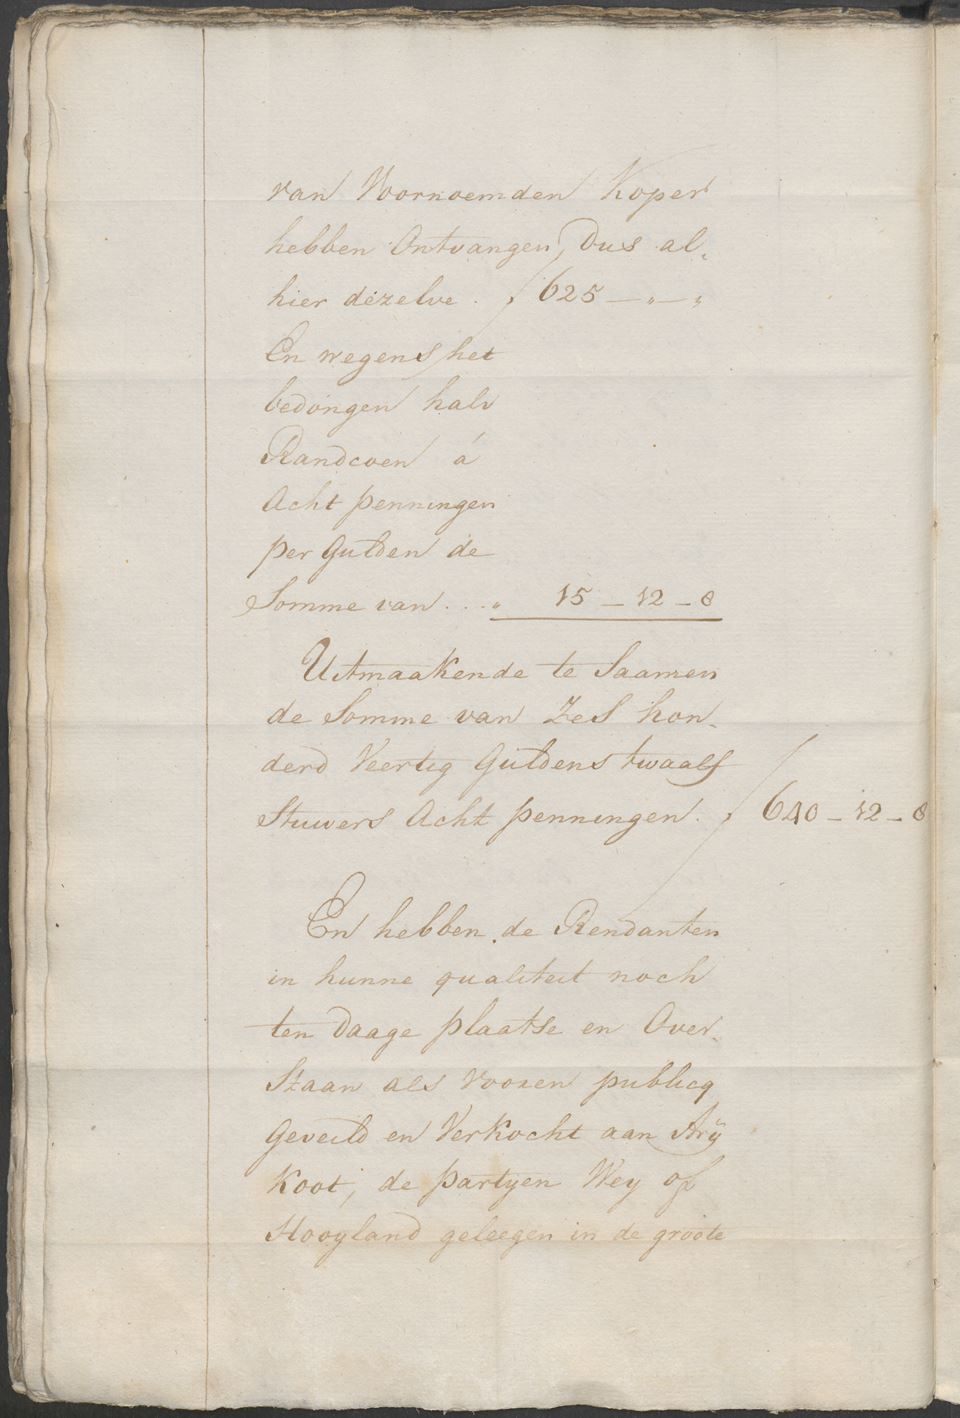 van Voornoemden Koper
hebben Ontvangen, Dus al„
hier dezelve . ƒ 625 — „ — „
En wegens het
bedongen halv
Randcoen á
Acht penningen
per Gulden de
Somme van . . . „ 15 — 12 — 8
Uitmaakende te Saamen
de Somme van Zes hon„
derd Veertig Guldens twaalf
Stuivers Acht penningen . ƒ 640 — 12 — 8
En hebben de Rendanten
in hunne qualiteit noch
ten Daage plaatse en Over„
Staan als vooren publicq
Geveild en Verkocht aan Arij
Koot, de partyen Wey of
Hooyland geleegen in de groote